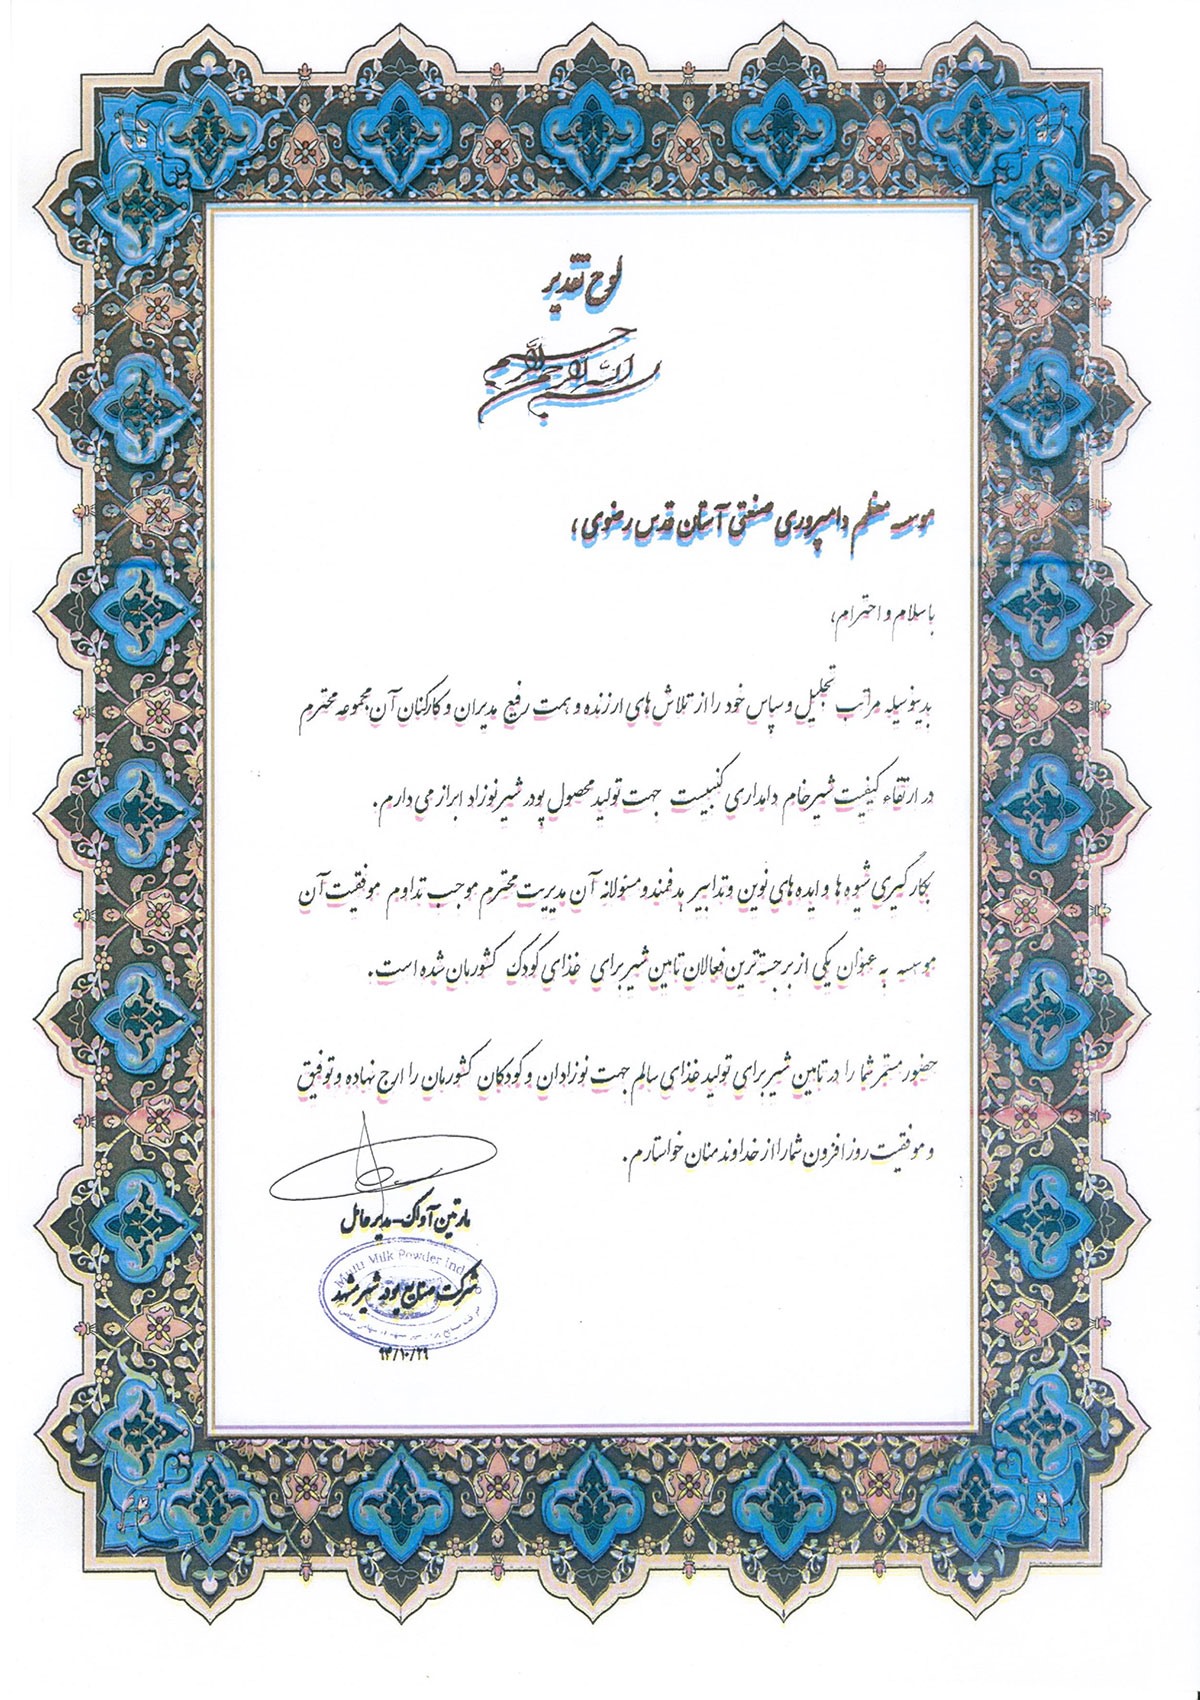 لوح تقدیر
بسم الله الرحمن الرحیم
موسسه معظم دامپروری صنعتی آستان قدس رضوی ؛
با سلام و احترام،
بدینوسیله مراتب تجلیل و سپاس خود را از تلاش های ارزنده و همت رفیع مدیران و کارکنان آن مجموعه محترم
در ارتقاء کیفیت شیر خام دامداری کنبیست جهت تولید محصول پودر شیر نوزاد ابراز می دارم.
بکارگیری شیوه ها و ایده های نوین و تدابیر هدفمند و مسئولانه آن مدیریت محترم موجب تداوم موفقیت آن
موسسه به عنوان یکی از برجسته ترین فعالان تامین شیر برای غذای کودک کشورمان شده است.
حضور مستمر شما را در تامین شیر برای تولید غذای سالم جهت نوزادان و کودکان کشورمان را ارج نهاده و توفیق
و موفقیت روز افزون شما را از خداوند منان خواستارم.
مارتین آوانک-مدیرعامل
Multi Milk Powder Ind
شرکت صنایع پودر شیر مشهد
۹۴/۱۰/۲۹